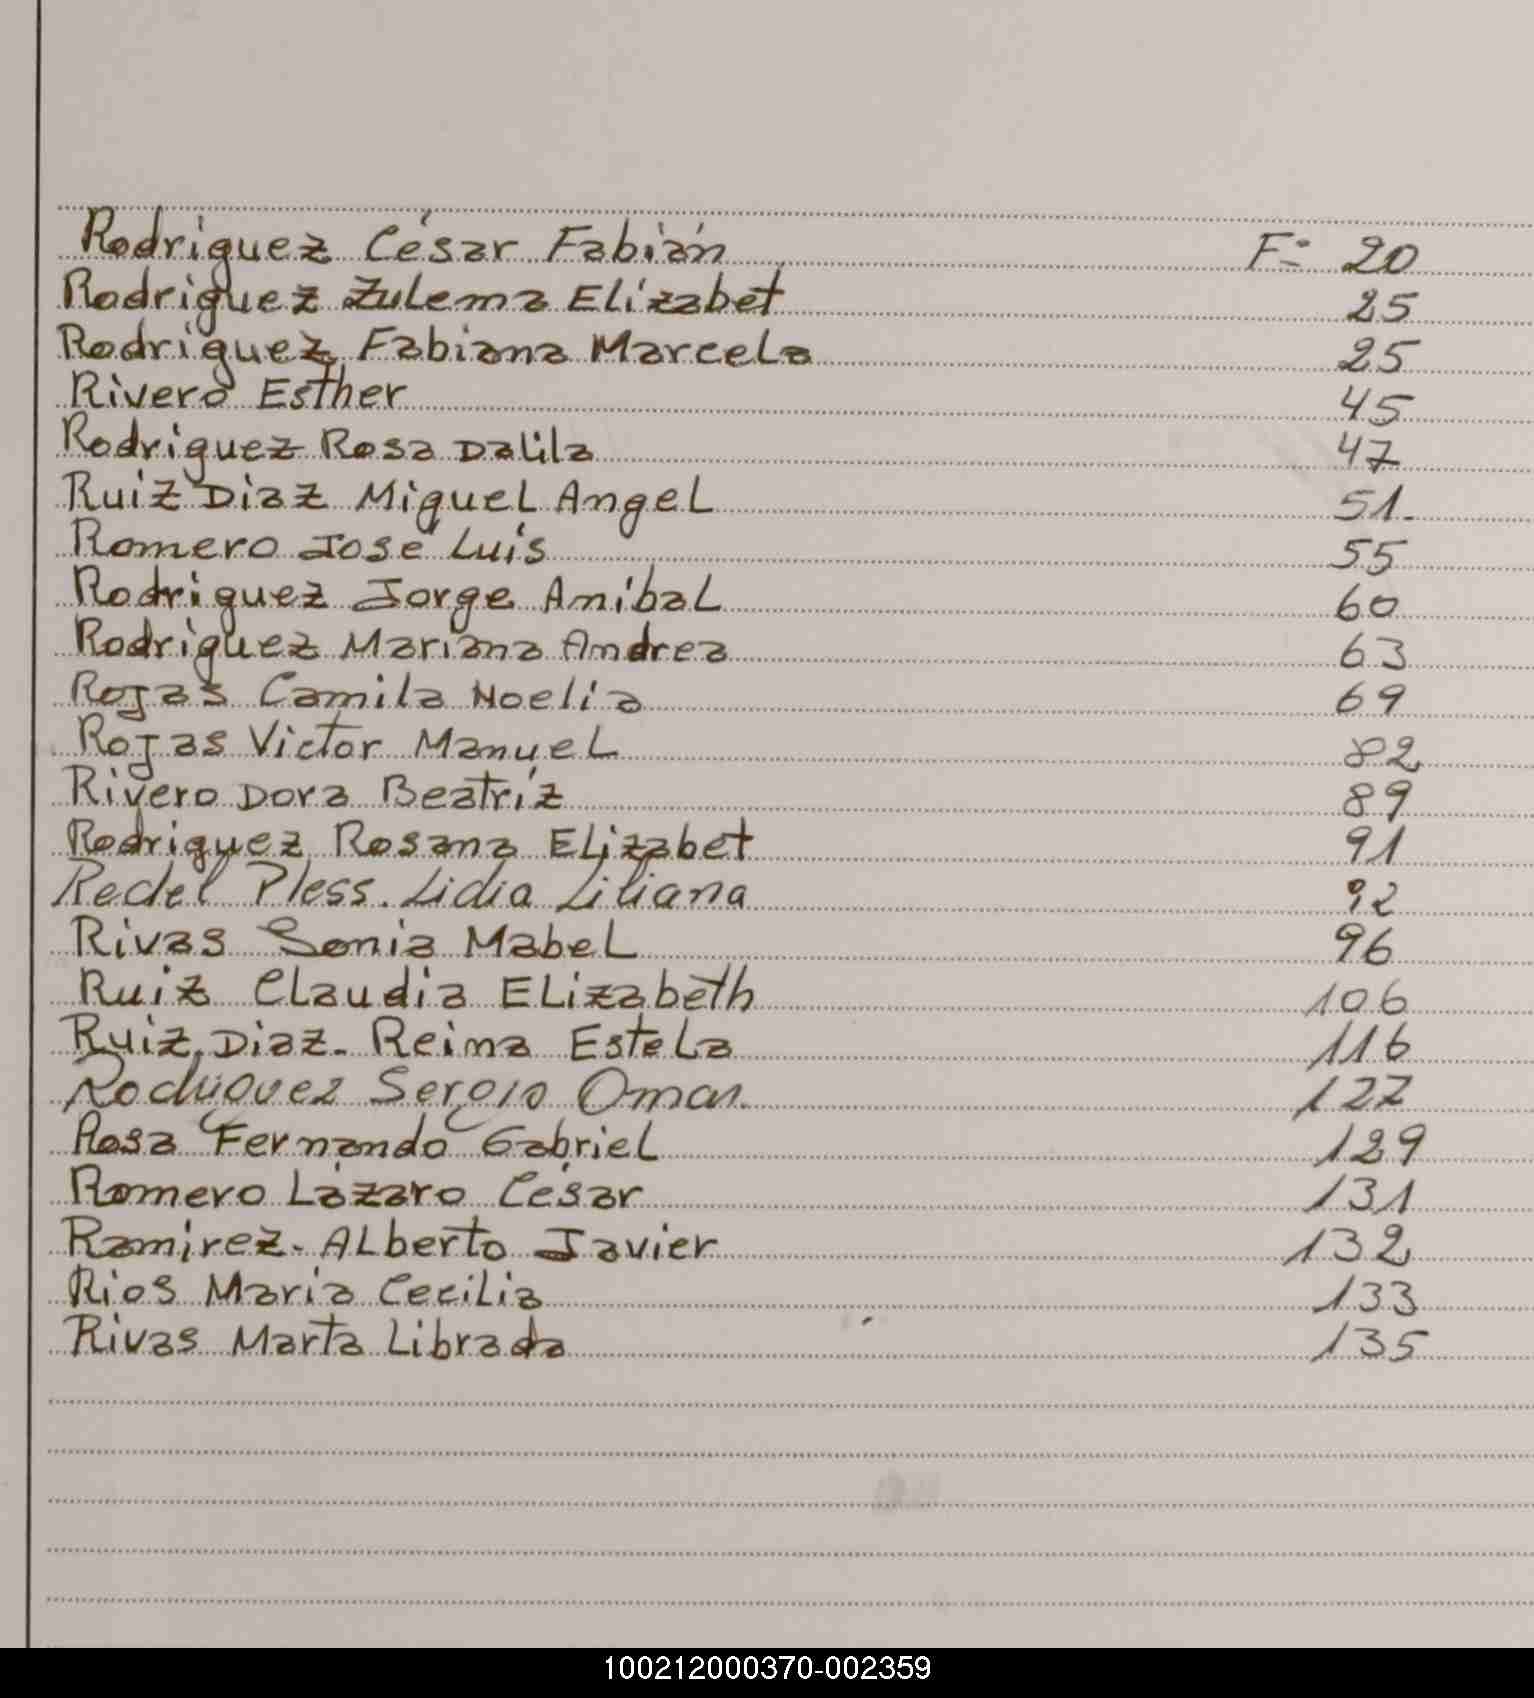 Rodriguez César Fabián F= 20
Rodriguez Zulema Elizabet 25
Rodriguez Fabiana Marcela 25
Rivero Esther 45
Rodriguez Rosa Dalila 47
Ruiz Diaz Miguel Angel 51.
Romero José Luis 55
Rodriguez Jorge Anibal 60
Rodriguez Mariana Andrea 63
Rojas Camila Noelia 69
Rojas Victor Manuel 82
Rivero Dora Beatriz 89
Rodriguez Rosana Elizabet 91
Redel Pless. Lidia Liliana 92
Rivas Sonia Mabel 96
Ruiz Claudia Elizabeth 106
Ruiz Diaz - Reina Estela 116
Rodriguez Sergio Omar. 127
Rosa Fernando Gabriel 129
Romero Lázaro César 131
Ramirez - Alberto Javier 132
Rios Maria Cecilia 133
Rivas Marta Librada 135
100212000370-002359